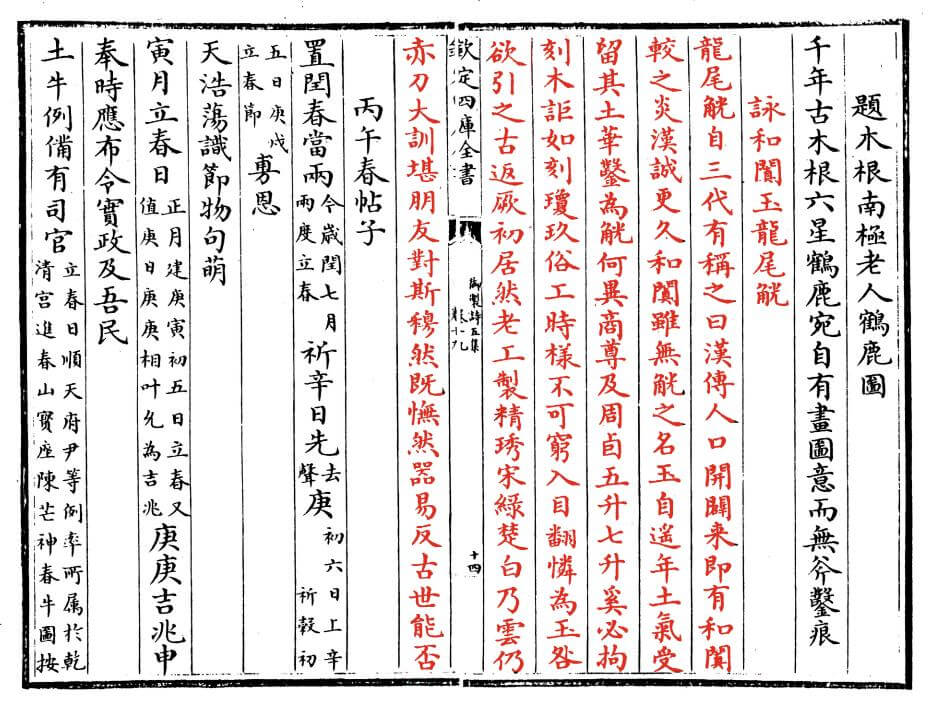 題木根南極老人鶴鹿圖
千年古木根六星鶴鹿宛自有畫圖意而無斧鑿痕
詠和闐玉龍尾觥
龍尾觥自三代有稱之曰漢傳人口開闢来即有和闐
較之炎漢誠更久和闐雖無觥之名玉自遥年土氣受
留其土華鑿為觥何異商尊及周卣五升七升奚必拘
刻木詎如刻瓊玖俗工時様不可窮入目翻憐為玉咎
欲引之古返厥初居然老工製精琇宋綠楚白乃雲仍
欽定四庫全書 御製詩五集 卷十九 十四
赤刀大訓堪朋友對斯穆然既憮然器易反古世能否
丙午春帖子
置閏春當兩今歲閏七月兩度立春祈辛日先去聲庚初六日上辛祈穀初
五日庚戌立春節旉恩
天浩蕩識節物句萌
寅月立春日正月建庚寅初五日立春又值庚日庚庚相叶允為吉兆庚庚吉兆申
奉時應布令實政及吾民
土牛例備有司官立春日順天府尹等例率所属於乾清宫進春山寳座陳芒神春牛圖按